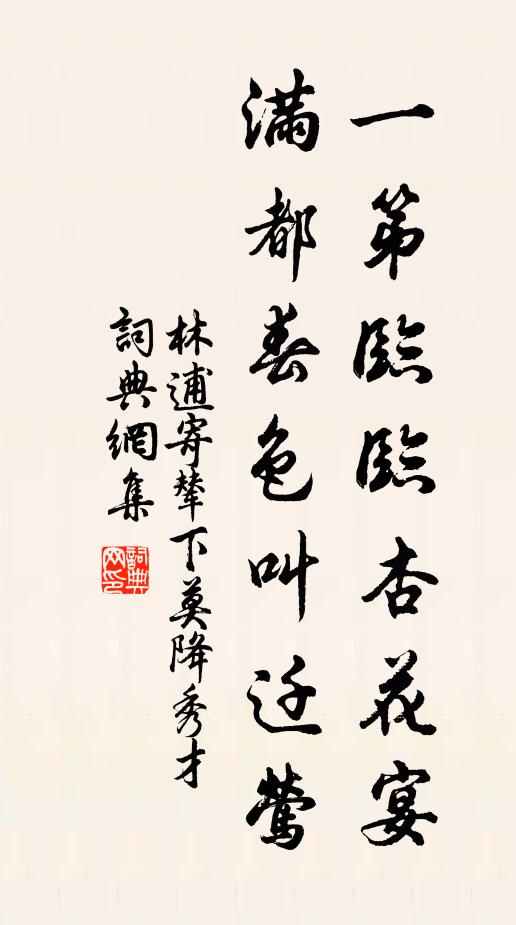 一第臨臨杏花宴
滿都春色叫迁鶯
林逋寄輦下莫降秀才
詞典網集
詞典
网印